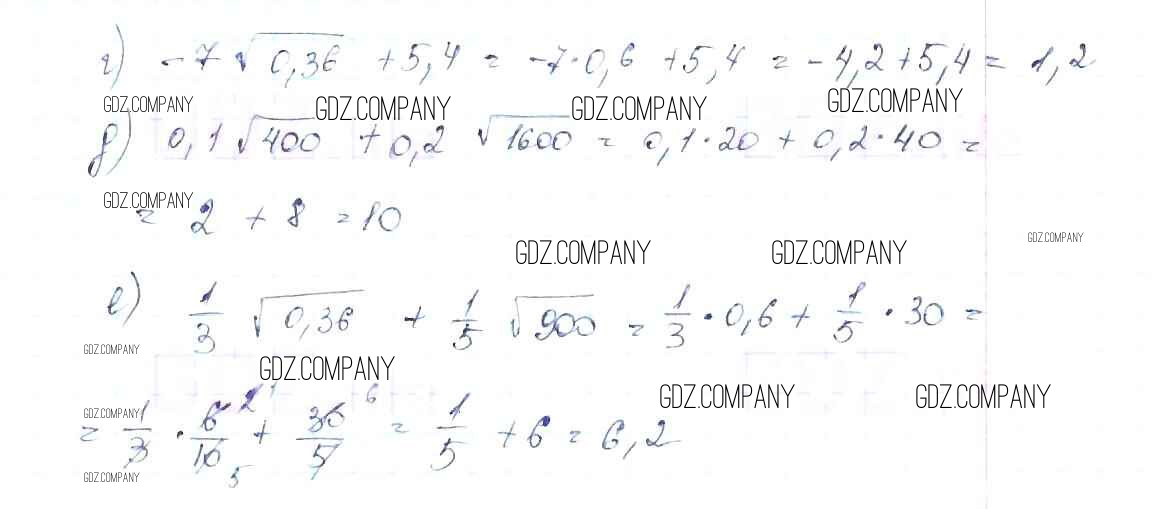 г) -7 √0,36 + 5,4 = -7·0,6 + 5,4 = -4,2 + 5,4 = 1,2
GDZ.COMPANY GDZ.COMPANY GDZ.COMPANY GDZ.COMPANY
д) 0,1 √400 + 0,2 √1600 = 0,1·20 + 0,2·40 =
GDZ.COMPANY
= 2 + 8 = 10
GDZ.COMPANY GDZ.COMPANY GDZ.COMPANY
е) 1/3 √0,36 + 1/5 √900 = 1/3 · 0,6 + 1/5 · 30 =
GDZ.COMPANY GDZ.COMPANY
GDZ.COMPANY GDZ.COMPANY GDZ.COMPANY
= 1/3 · 6/10 2 1 5 + 30/5 6 = 1/5 + 6 = 6,2
GDZ.COMPANY